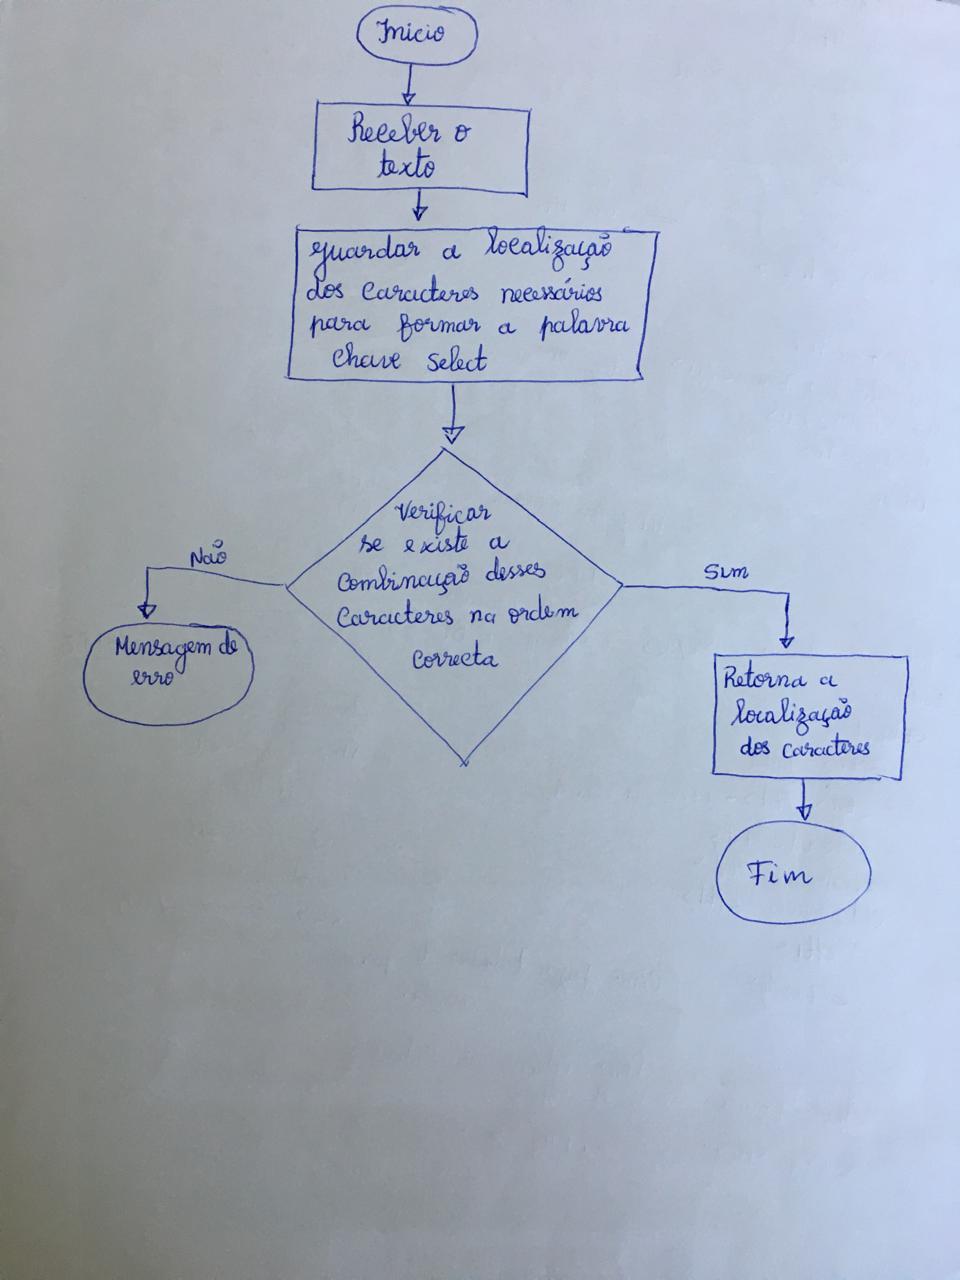 Início
Receber o
texto
guardar a localização
dos caracteres necessários
para formar a palavra
chave select
Verificar
se existe a
Combinação desses
Caracteres na ordem
correcta
Não
Sim
Mensagem de
erro
Retorna a
localização
dos caracteres
Fim